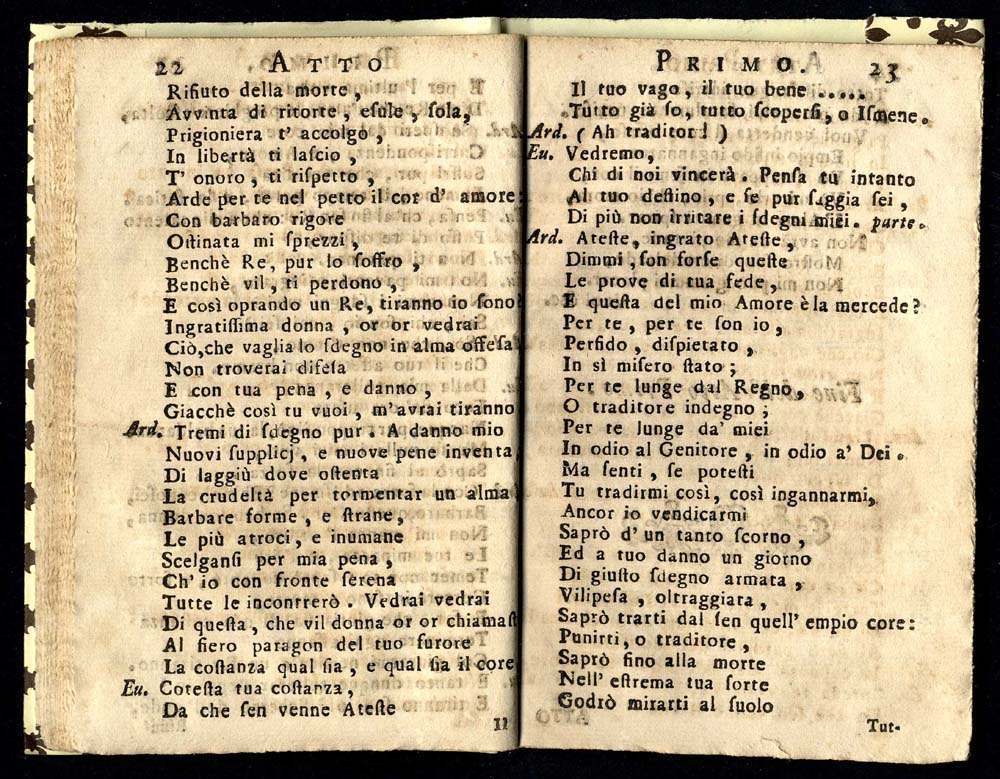 22 ATTO
Rifiuto della morte,
Avvinta di ritorte, eſule, ſola,
Prigioniera t' accolgo,
In libertà ti laſcio,
T' onoro, ti riſpetto,
Arde per te nel petto il cor d' amore:
Con barbaro rigore
Oſtinata mi ſprezzi,
Benchè Re, pur lo ſoffro,
Benchè vil, ti perdono,
E così oprando un Re, tiranno io ſono?
Ingratiſſima donna, or or vedrai
Ciò, che vaglia lo ſdegno in alma offeſa
Non troverai difeſa
E con tua pena, e danno,
Giacchè così tu vuoi, m'avrai tiranno
Ard. Tremi di ſdegno pur. A danno mio
Nuovi ſupplicj, e nuove pene inventa
Di laggiù dove oſtenta
La crudeltà per tormentar un alma
Barbare forme, e ſtrane,
Le più atroci, e inumane
Scelganſi per mia pena,
Ch' io con fronte ſerena
Tutte le incontrerò. Vedrai vedrai
Di queſta, che vil donna or or chiamaſt
Al fiero paragon del tuo furore
La coſtanza qual ſia, e qual ſia il core
Eu. Coteſta tua coſtanza,
Da che ſen venne Ateſte
Il
PRIMO. 23
Il tuo vago, il tuo bene .....
Tutto già ſo, tutto ſcoperſi, o Iſmene.
Ard. (Ah traditor!)
Eu. Vedremo,
Chi di noi vincerà. Penſa tu intanto
Al tuo deſtino, e ſe pur ſaggia ſei,
Di più non irritare i ſdegni miei. parte.
Ard. Ateſte, ingrato Ateſte,
Dimmi, ſon forſe queſte
Le prove di tua fede,
E queſta del mio Amore è la mercede?
Per te, per te ſon io,
Perfido, diſpietato,
In sì miſero ſtato;
Per te lunge dal Regno,
O traditore indegno;
Per te lunge da' miei
In odio al Genitore, in odio a' Dei.
Ma ſenti, ſe poteſti
Tu tradirmi così, così ingannarmi,
Ancor io vendicarmi
Saprò d' un tanto ſcorno,
Ed a tuo danno un giorno
Di giuſto ſdegno armata,
Vilipeſa, oltraggiata,
Saprò trarti dal ſen quell' empio core:
Punirti, o traditore,
Saprò fino alla morte
Nell' eſtrema tua ſorte
Godrò mirarti al ſuolo
Tut-